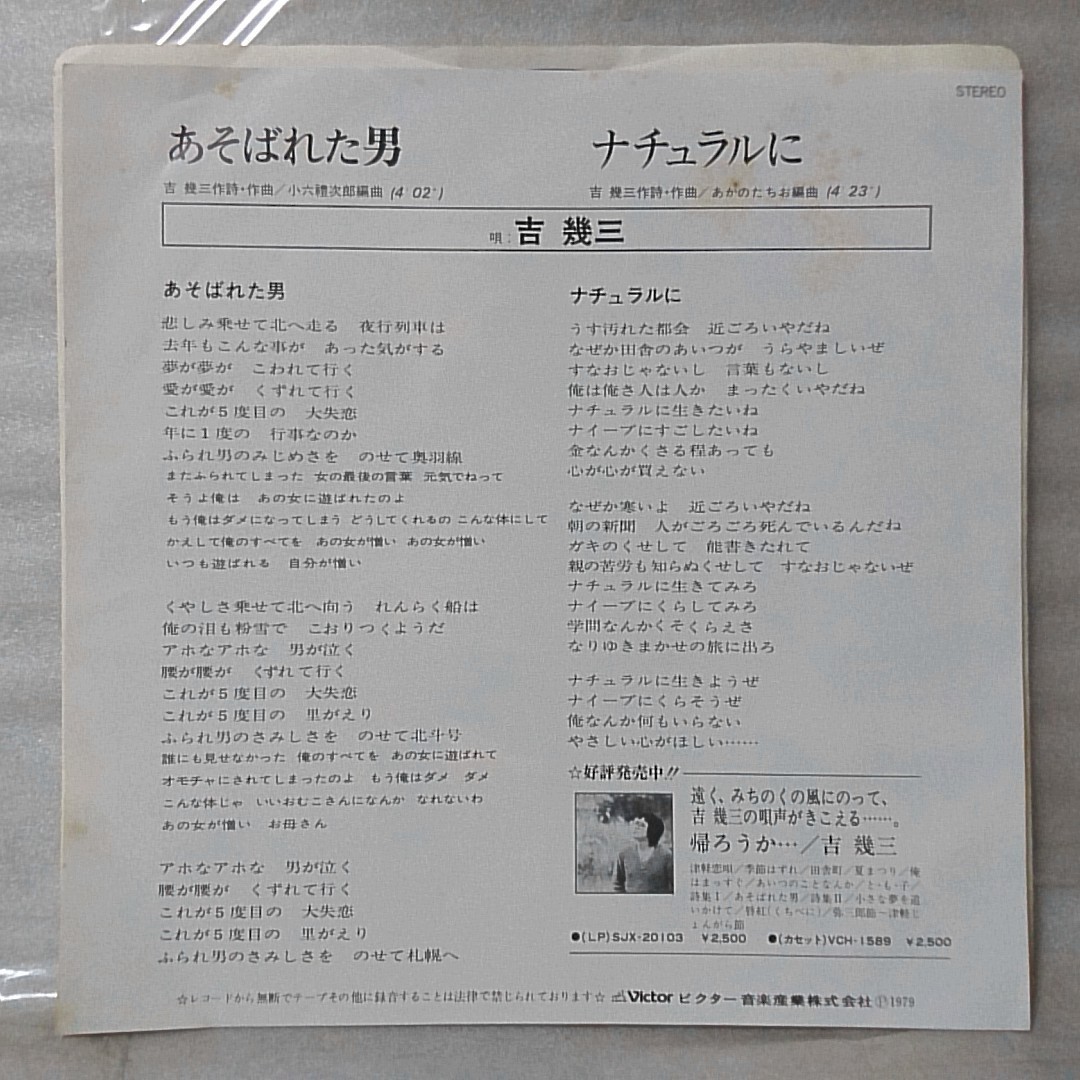 STEREO
あそばれた男
吉 幾三作詩・作曲／小六禮次郎編曲 (4´02˝)
ナチュラルに
吉 幾三作詩・作曲／あかのたちお編曲 (4´23˝)
唄:吉 幾三
あそばれた男
悲しみ乗せて北へ走る 夜行列車は
去年もこんな事が あった気がする
夢が夢が こわれて行く
愛が愛が くずれて行く
これが5度目の 大失恋
年に1度の 行事なのか
ふられ男のみじめさを のせて奥羽線
またふられてしまった 女の最後の言葉 元気でねって
そうよ俺は あの女に遊ばれたのよ
もう俺はダメになってしまう どうしてくれるの こんな体にして
かえして俺のすべてを あの女が憎い あの女が憎い
いつも遊ばれる 自分が憎い
くやしさ乗せて北へ向う れんらく船は
俺の泪も粉雪で こおりつくようだ
アホなアホな 男が泣く
腰が腰が くずれて行く
これが5度目の 大失恋
これが5度目の 里がえり
ふられ男のさみしさを のせて北斗号
誰にも見せなかった 俺のすべてを あの女に遊ばれて
オモチャにされてしまったのよ もう俺はダメ ダメ
こんな体じゃ いいおむこさんになんか なれないわ
あの女が憎い お母さん
アホなアホな 男が泣く
腰が腰が くずれて行く
これが5度目の 大失恋
これが5度目の 里がえり
ふられ男のさみしさを のせて札幌へ
ナチュラルに
うす汚れた都会 近ごろいやだね
なぜか田舎のあいつが うらやましいぜ
すなおじゃないし 言葉もないし
俺は俺さ人は人か まったくいやだね
ナチュラルに生きたいね
ナイーブにすごしたいね
金なんかくさる程あっても
心が心が買えない
なぜか寒いよ 近ごろいやだね
朝の新聞 人がごろごろ死んでいるんだね
ガキのくせして 能書きたれて
親の苦労も知らぬくせして すなおじゃないぜ
ナチュラルに生きてみろ
ナイーブにくらしてみろ
学問なんかくそくらえさ
なりゆきまかせの旅に出ろ
ナチュラルに生きようぜ
ナイーブにくらそうぜ
俺なんか何もいらない
やさしい心がほしい……
☆好評発売中!!
遠く、みちのくの風にのって、
吉 幾三の唄声がきこえる……。
帰ろうか…／吉 幾三
津軽恋唄／季節はずれ／田舎町／夏まつり／俺
はまっすぐ／あいつのことなんか／と・も・子／
詩集Ⅰ／あそばれた男／詩集Ⅱ／小さな夢を追
いかけて／唇紅(くちべに)／弥三郎節〜津軽じ
ょんがら節
●(LP)SJX-20103 ¥2,500 ●(カセット)VCH-1589 ¥2,500
☆レコードから無断でテープその他に録音することは法律で禁じられております☆ Victor ビクター音楽産業株式会社 Ⓟ1979